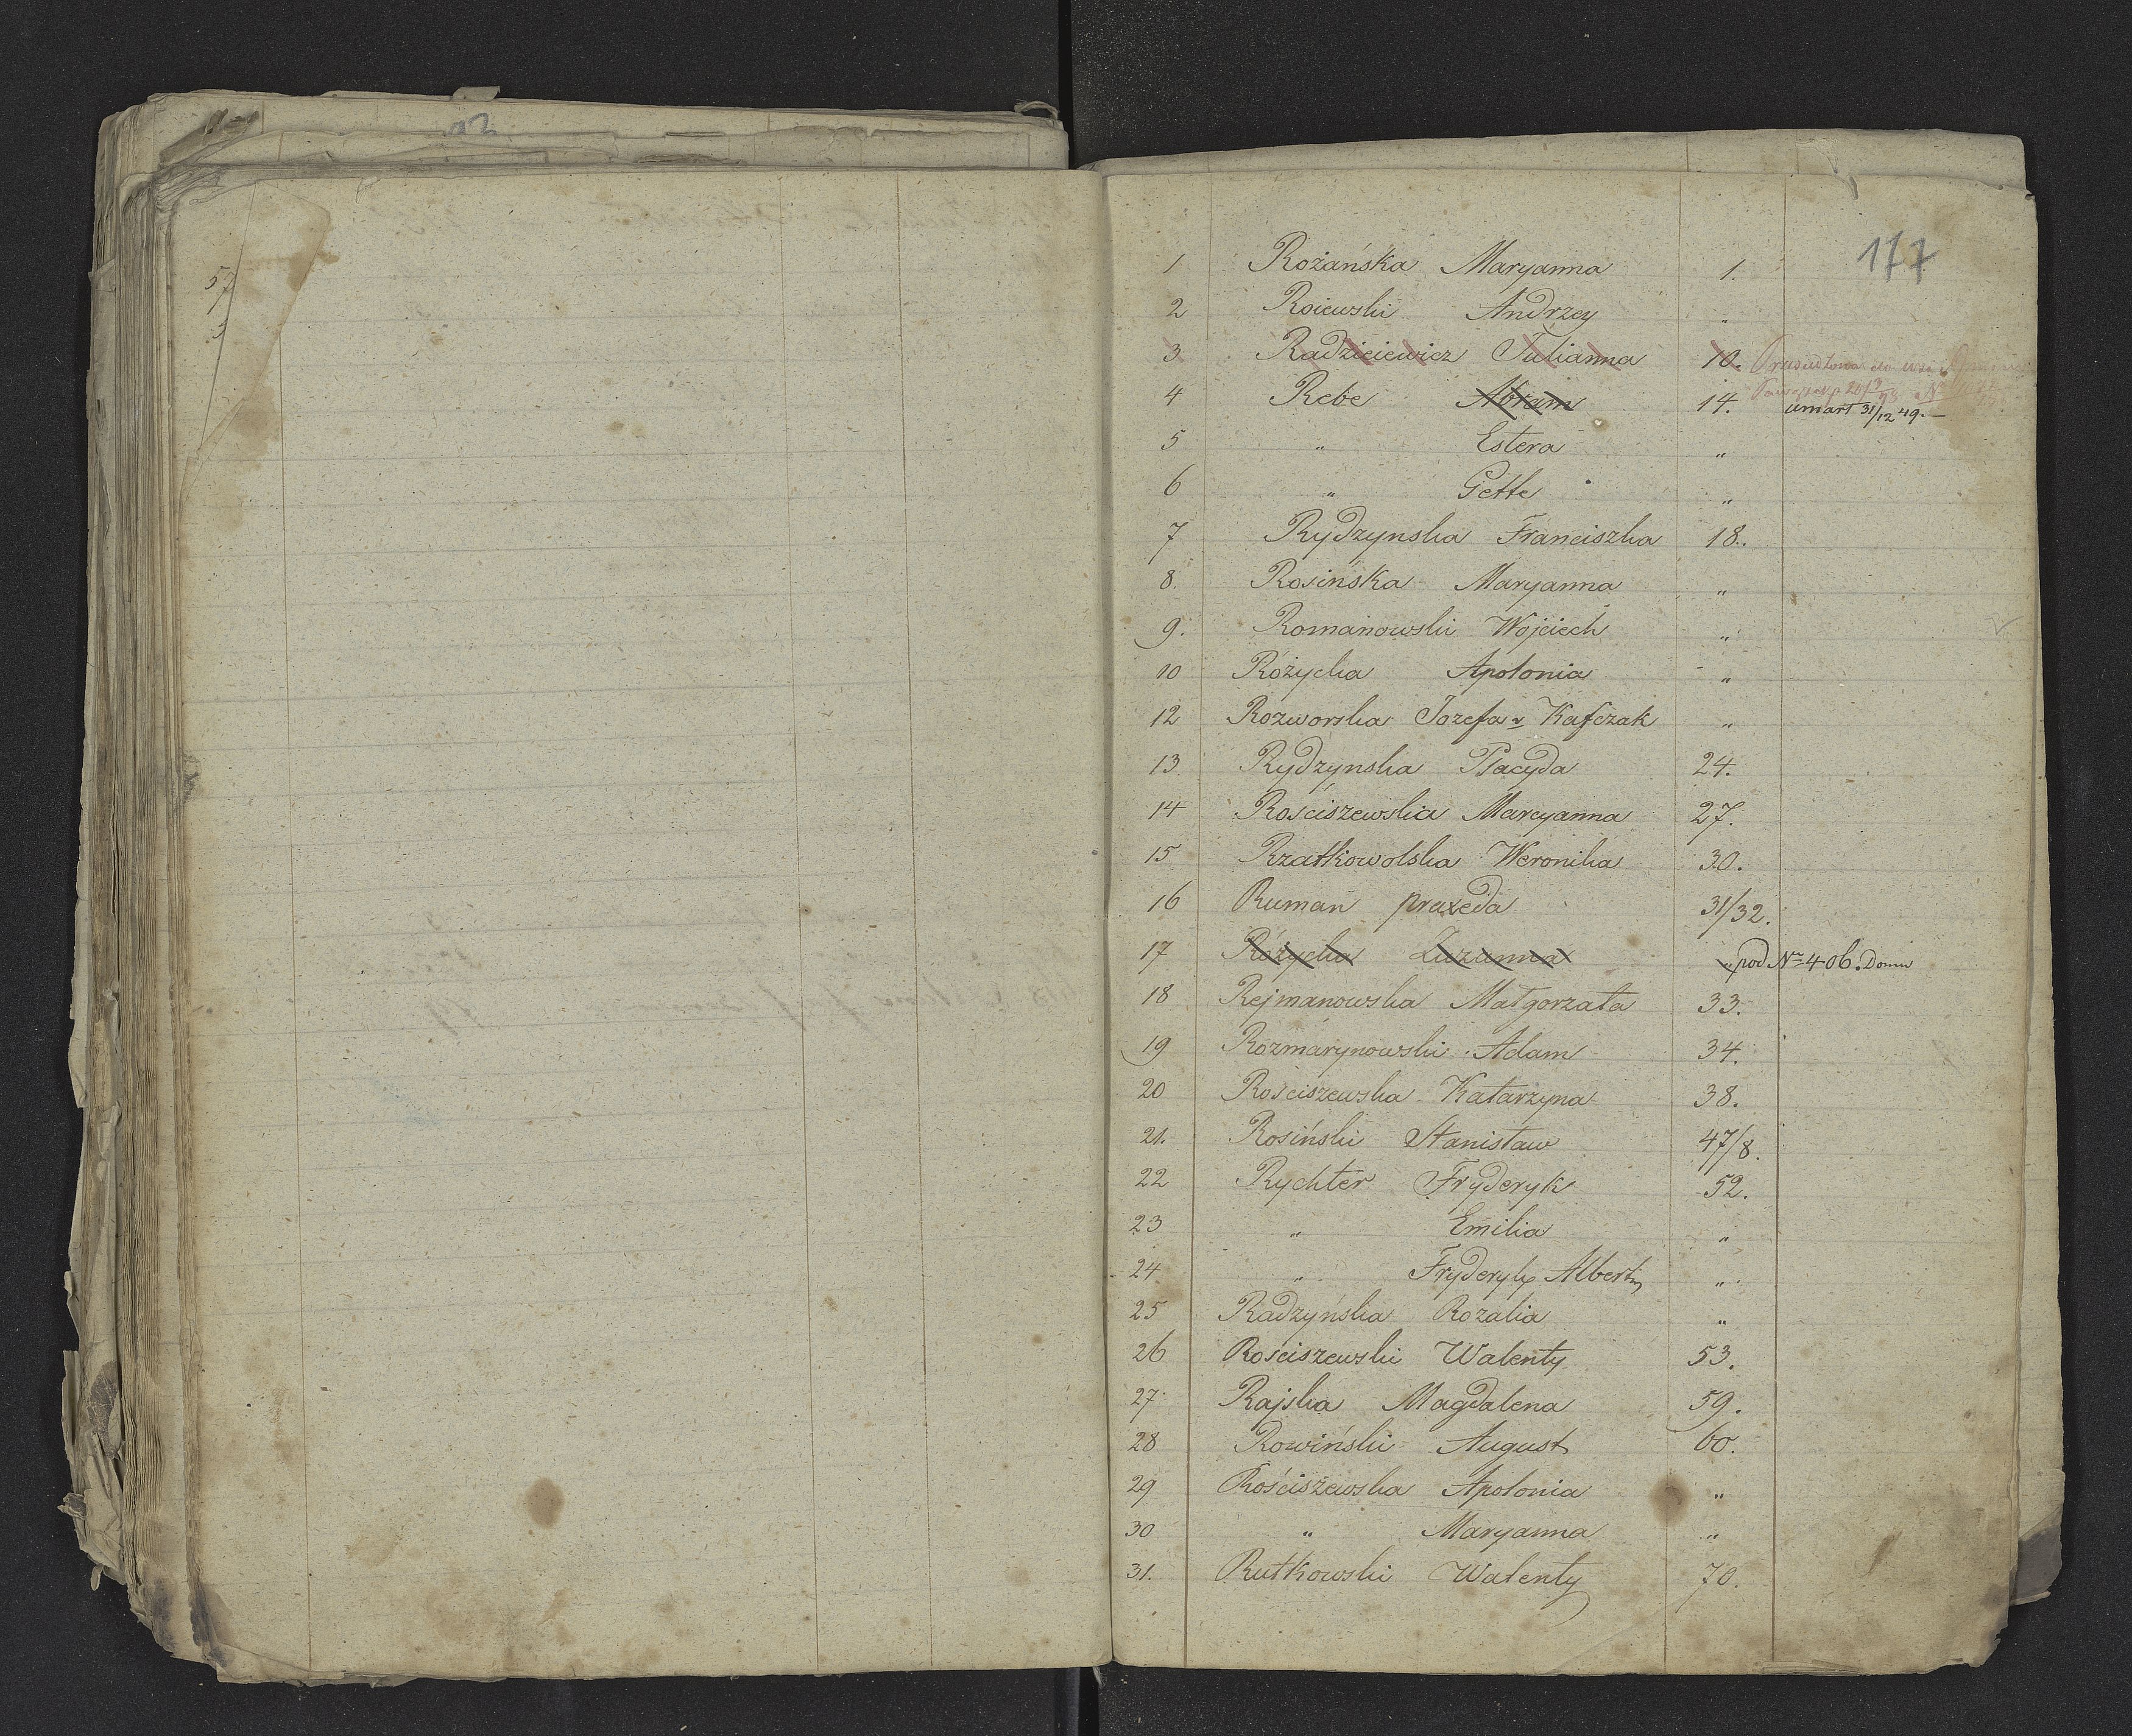 57
3
177
1 Rożańska Maryanna 1.
2 Roiewski Andrzey "
3 Radzieiewicz Julianna 10.
4 Rebe Abram 14. umarł 31/12 49.
5 " Estera "
6 " Gette "
7 Rydzynska Franciszka 18.
8. Rosińska Maryanna "
9. Romanowski Wojciech "
10 Różycka Apolonia "
12 Rozworska Jozefa v Kafczak "
13 Rydzynska Placyda 24.
14 Rościszewska Maryanna 27.
15 Rzatkowolska Weronika 30.
16 Ruman praxeda 31/32.
17 Różycka Zuzanna " pod No 406. Domu
18 Rejmanowska Małgorzata 33.
19 Rozmarynowski Adam 34.
20 Rościszewska Katarzyna 38.
21. Rosiński Stanisław 47/8.
22 Rychter Fryderyk 52.
23 " Emilia "
24 " Fryderyk Albert "
25 Radzyńska Rozalia "
26 Rościszewski Walenty 53.
27 Rajska Magdalena 59.
28 Rowiński August 60.
29 Rościszewska Apolonia "
30 " Maryanna "
31. Rutkowski Walenty 70.